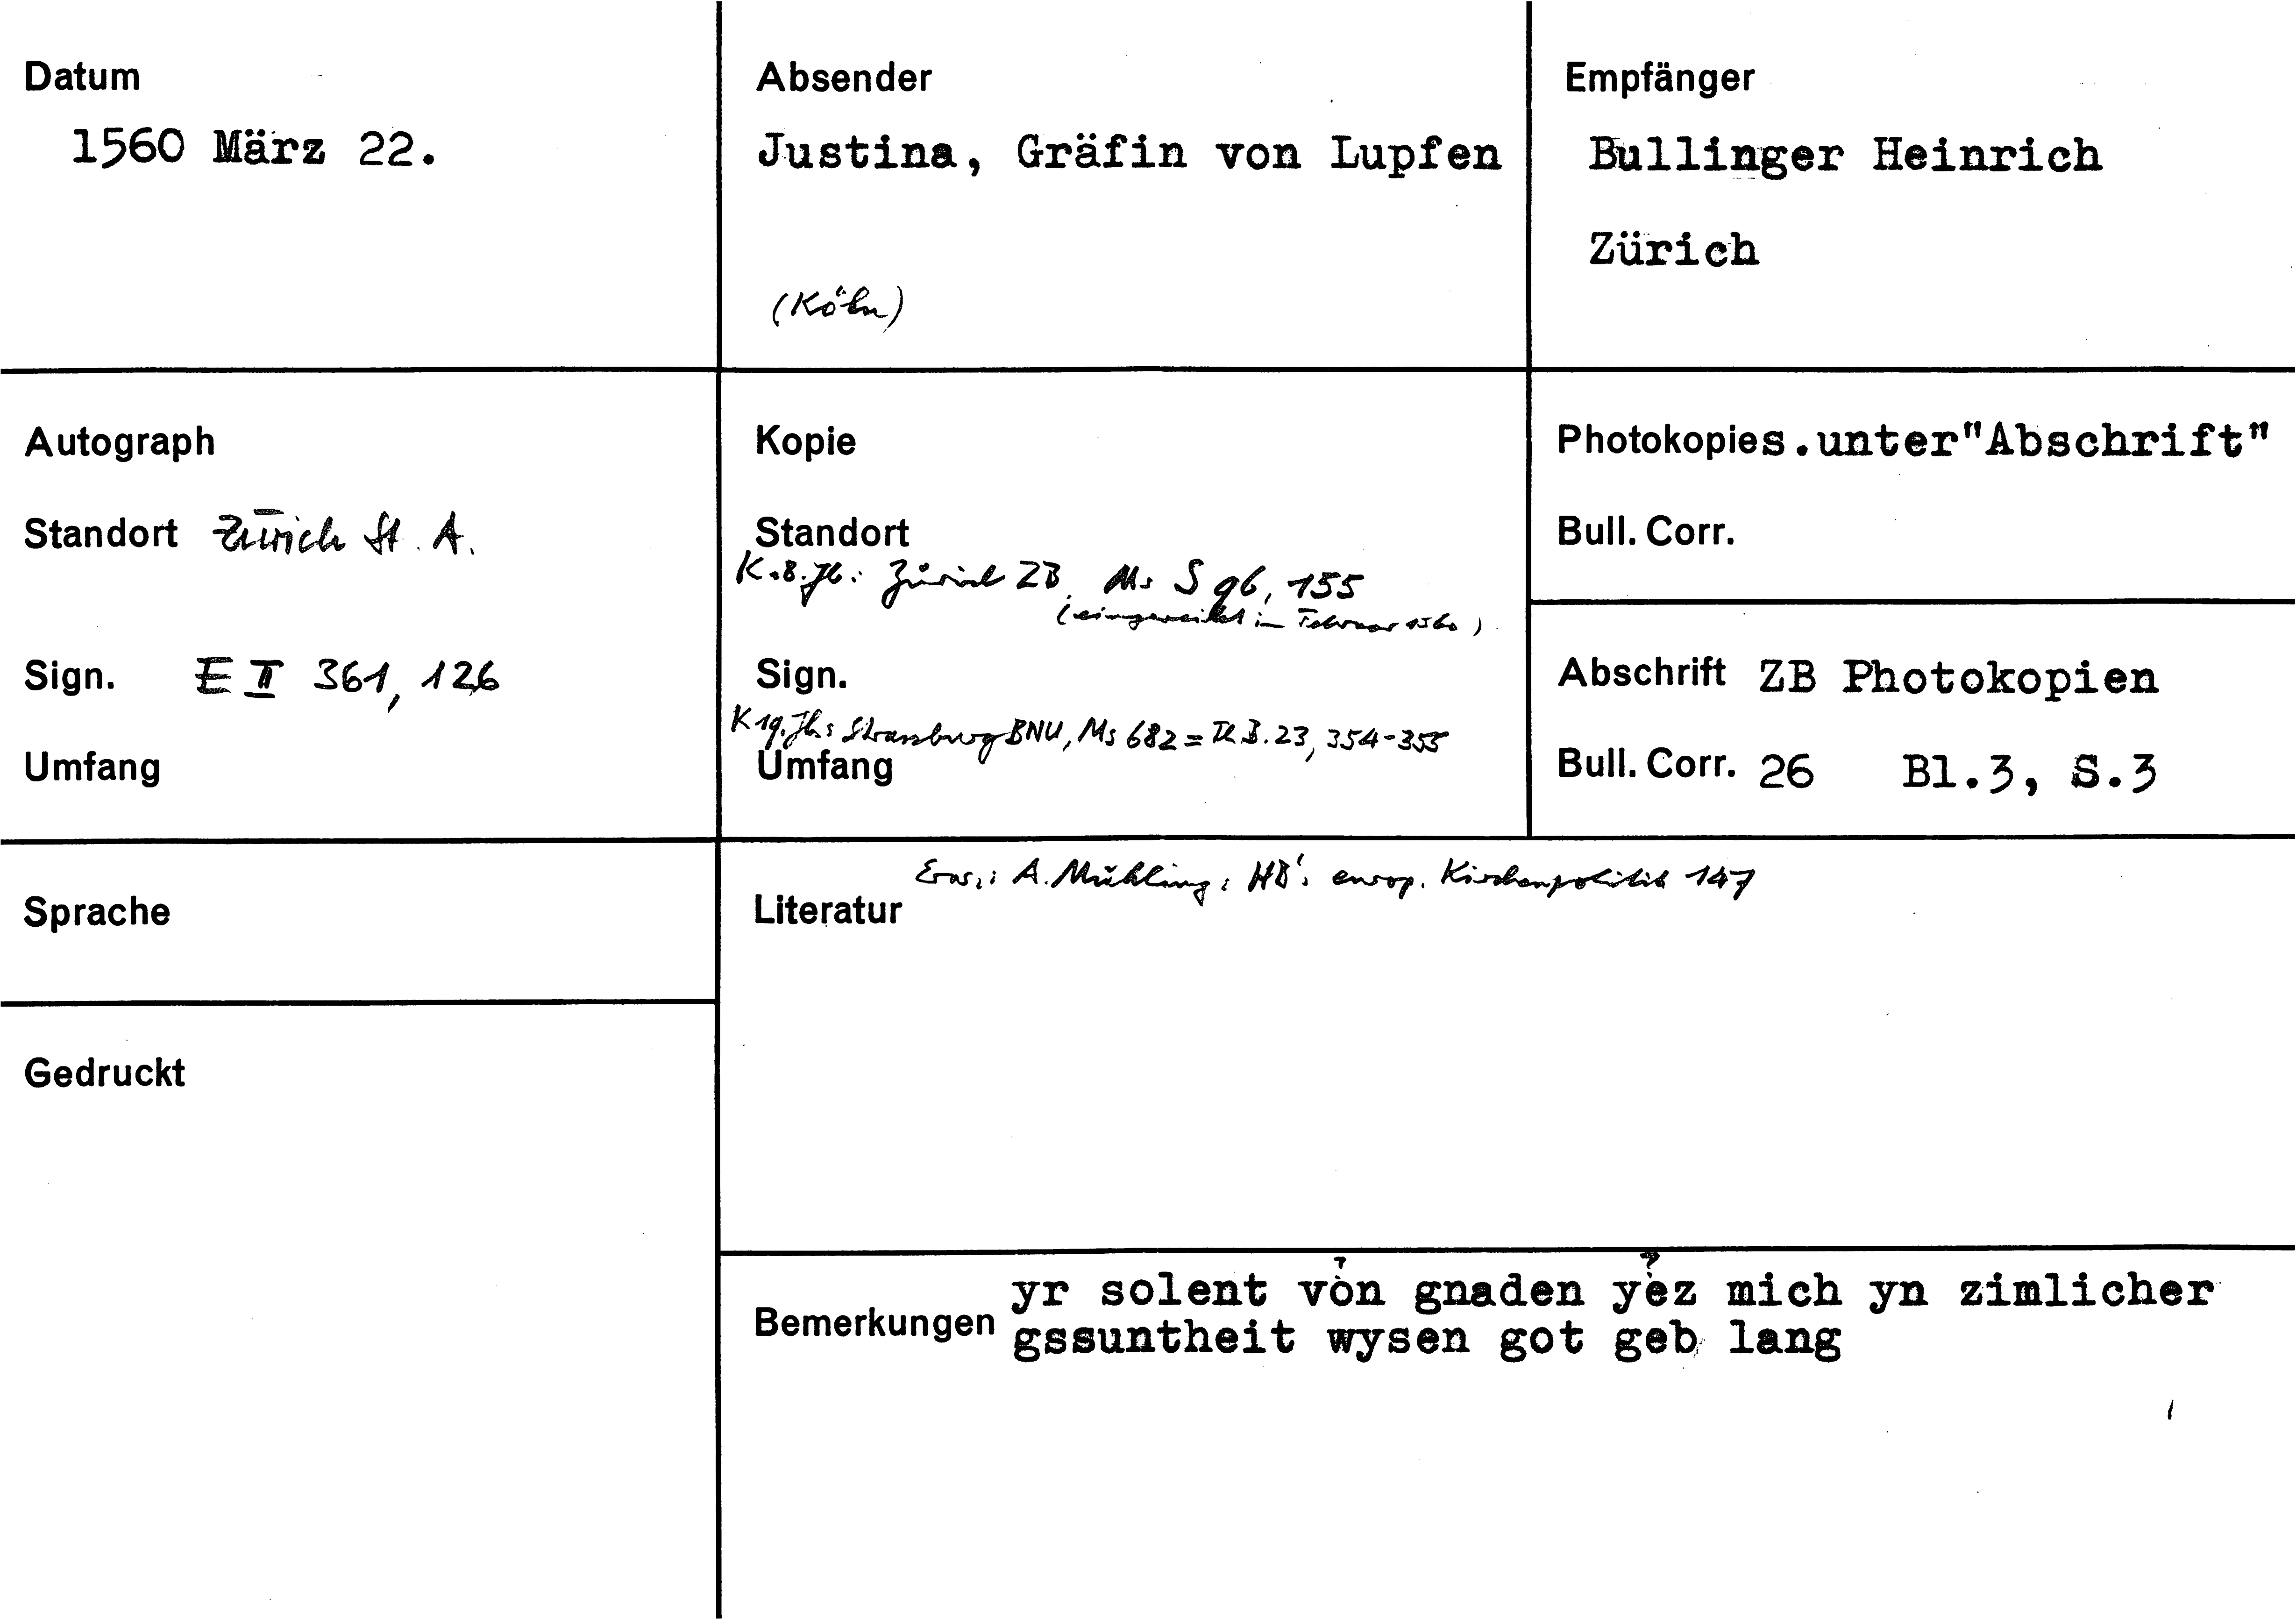 Datum
1560 März 22.
Absender
Justina, Gräfin von Lupfen
(Köln)
Empfänger
Bullinger Heinrich
Zürich
Autograph
Standort Zürich St. A.
Sign. E II 361, 126
Umfang
Kopie
Standort
K. 18. Jh.: Zürich ZB, Ms S 96, 155
(eingereiht im Februar 1560)
Sign.
K 19. Jh.: Strassburg BNU, Ms 682 = Th B. 23, 354-355
Umfang
Photokopie s.unter"Abschrift"
Bull. Corr.
Abschrift ZB Photokopien
Bull. Corr. 26 Bl.3, S.3
Sprache
Gedruckt
Erw.: A. Mühling, HB's europ. Kirchenpolitik 147
Literatur
yr solent von gnaden yez mich yn zimlicher
Bemerkungen gssuntheit wysen got geb lang